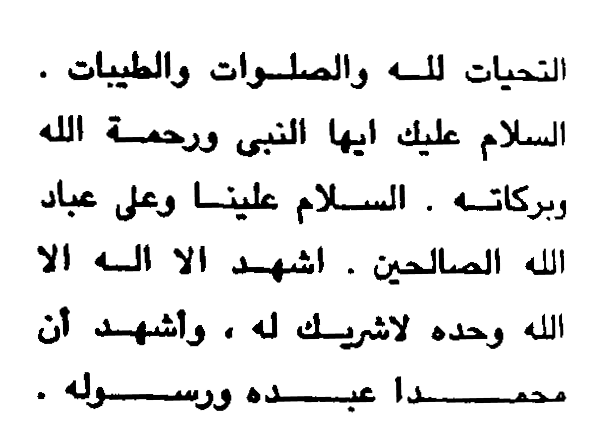 التحيات للـــه والصلــوات والطيبات .
السلام عليك ايها النبى ورحمــة الله
وبركاتــه . الســلام علينــا وعلى عباد
الله الصالحين . اشهــد الا الــه الا
الله وحده لاشريــك له ، وأشهــد أن
محمــــدا عبــــده ورســــوله .